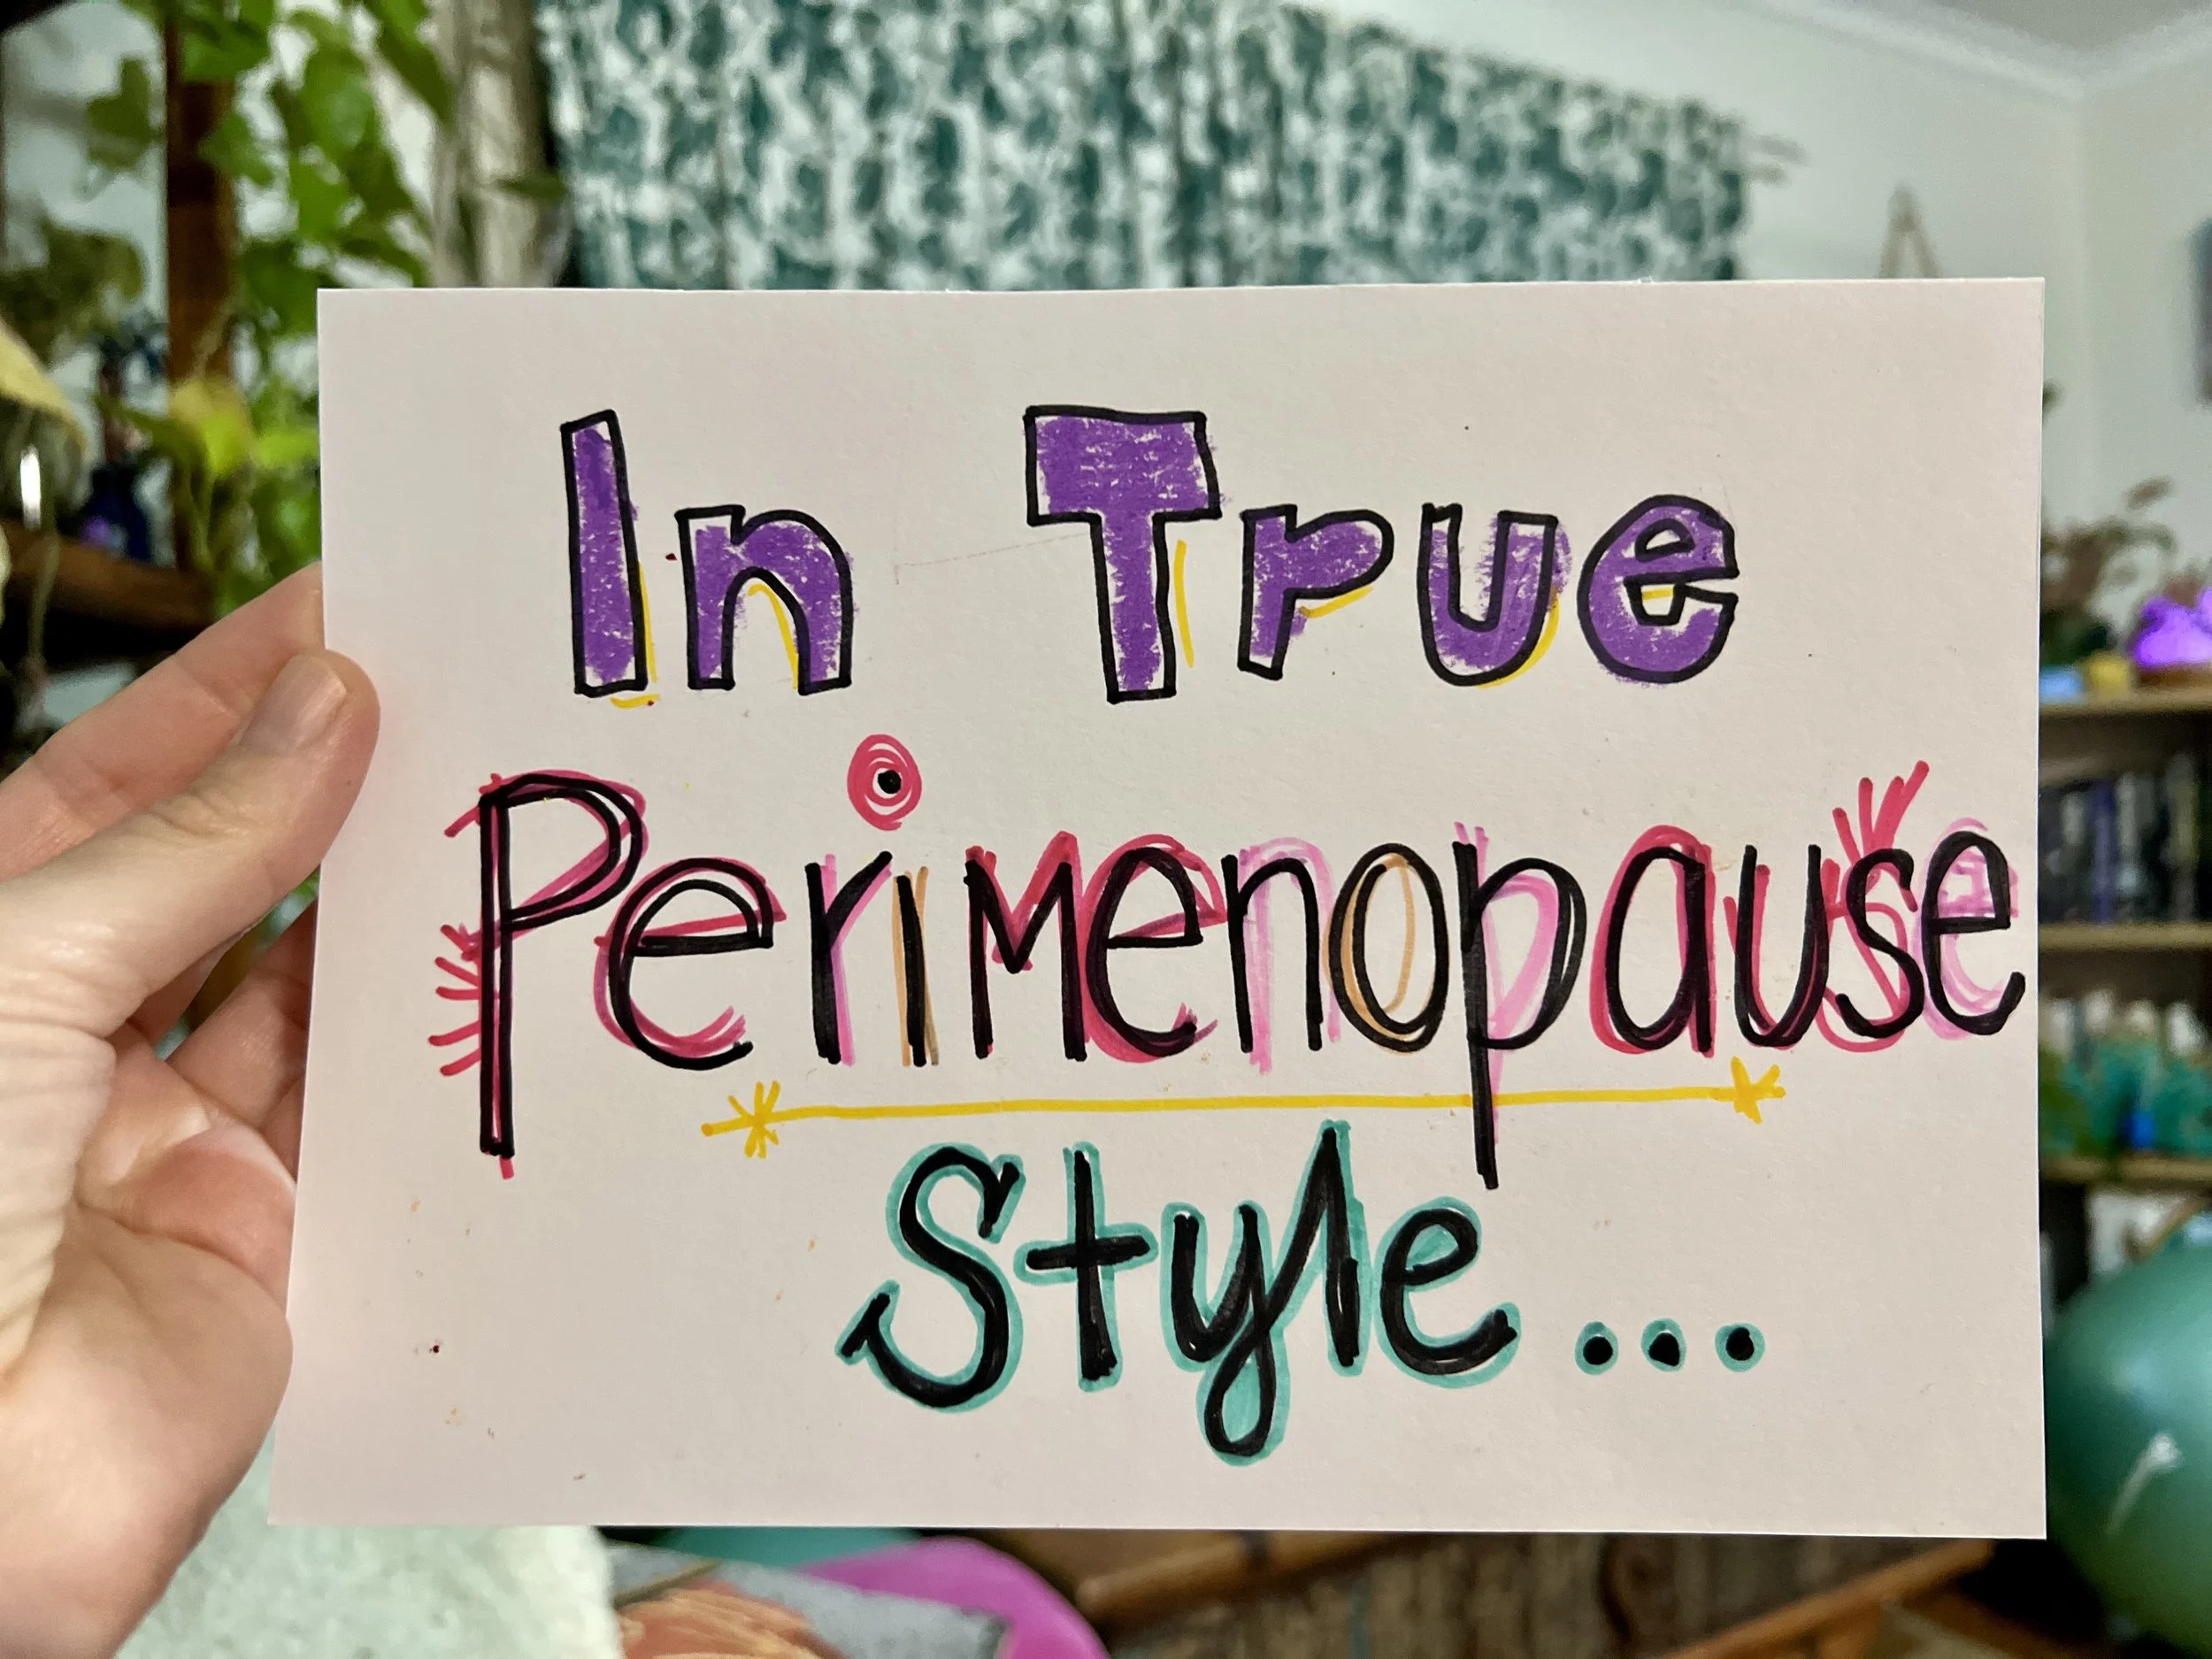 In True
Perimenopause
Style...